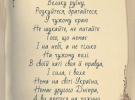 Велику руїну,
Розкуйтеся, братайтеся,
У чужому краю
Не шукайте, не питайте
Того, що немає
І на небі, а не тілько
На чужому полі.
В своїй хаті своя й правда,
І сила, і воля.
Нема на світі України,
Немає другого Дніпра,
А ви претеся на чужину